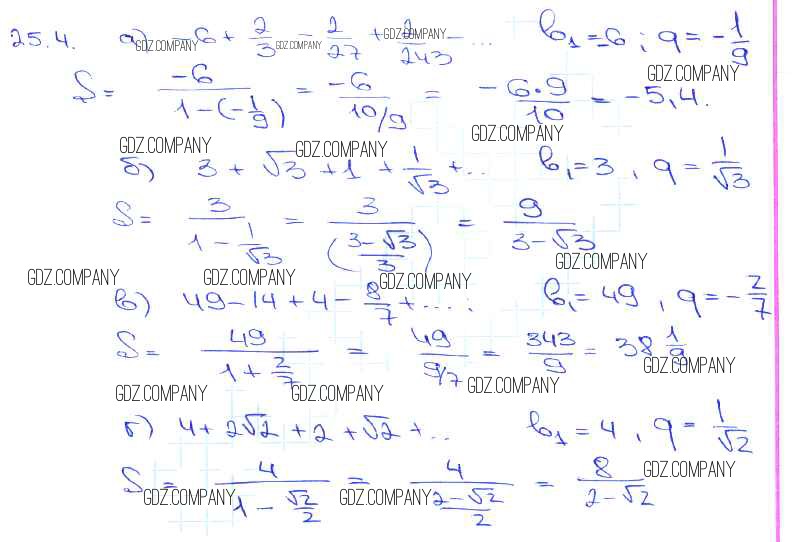 25.4. а) -6 + 2/3 - 2/27 + 2/243 - ... b₁ = -6 ; q = -1/9
GDZ.COMPANY GDZ.COMPANY GDZ.COMPANY GDZ.COMPANY
S = -6/(1-(-1/9)) = -6/(10/9) = -6·9/10 = -5,4.
GDZ.COMPANY GDZ.COMPANY GDZ.COMPANY
б) 3 + √3 + 1 + 1/√3 + ... b₁ = 3 , q = 1/√3
S = 3/(1 - 1/√3) = 3/((3-√3)/3) = 9/(3-√3)
GDZ.COMPANY GDZ.COMPANY GDZ.COMPANY GDZ.COMPANY
в) 49 - 14 + 4 - 8/7 + .... ; b₁ = 49 , q = -2/7
S = 49/(1 + 2/7) = 49/(9/7) = 343/9 = 38 1/9
GDZ.COMPANY GDZ.COMPANY GDZ.COMPANY GDZ.COMPANY
г) 4 + 2√2 + 2 + √2 + ... b₁ = 4 , q = 1/√2
S = 4/(1 - √2/2) = 4/((2-√2)/2) = 8/(2-√2)
GDZ.COMPANY GDZ.COMPANY GDZ.COMPANY